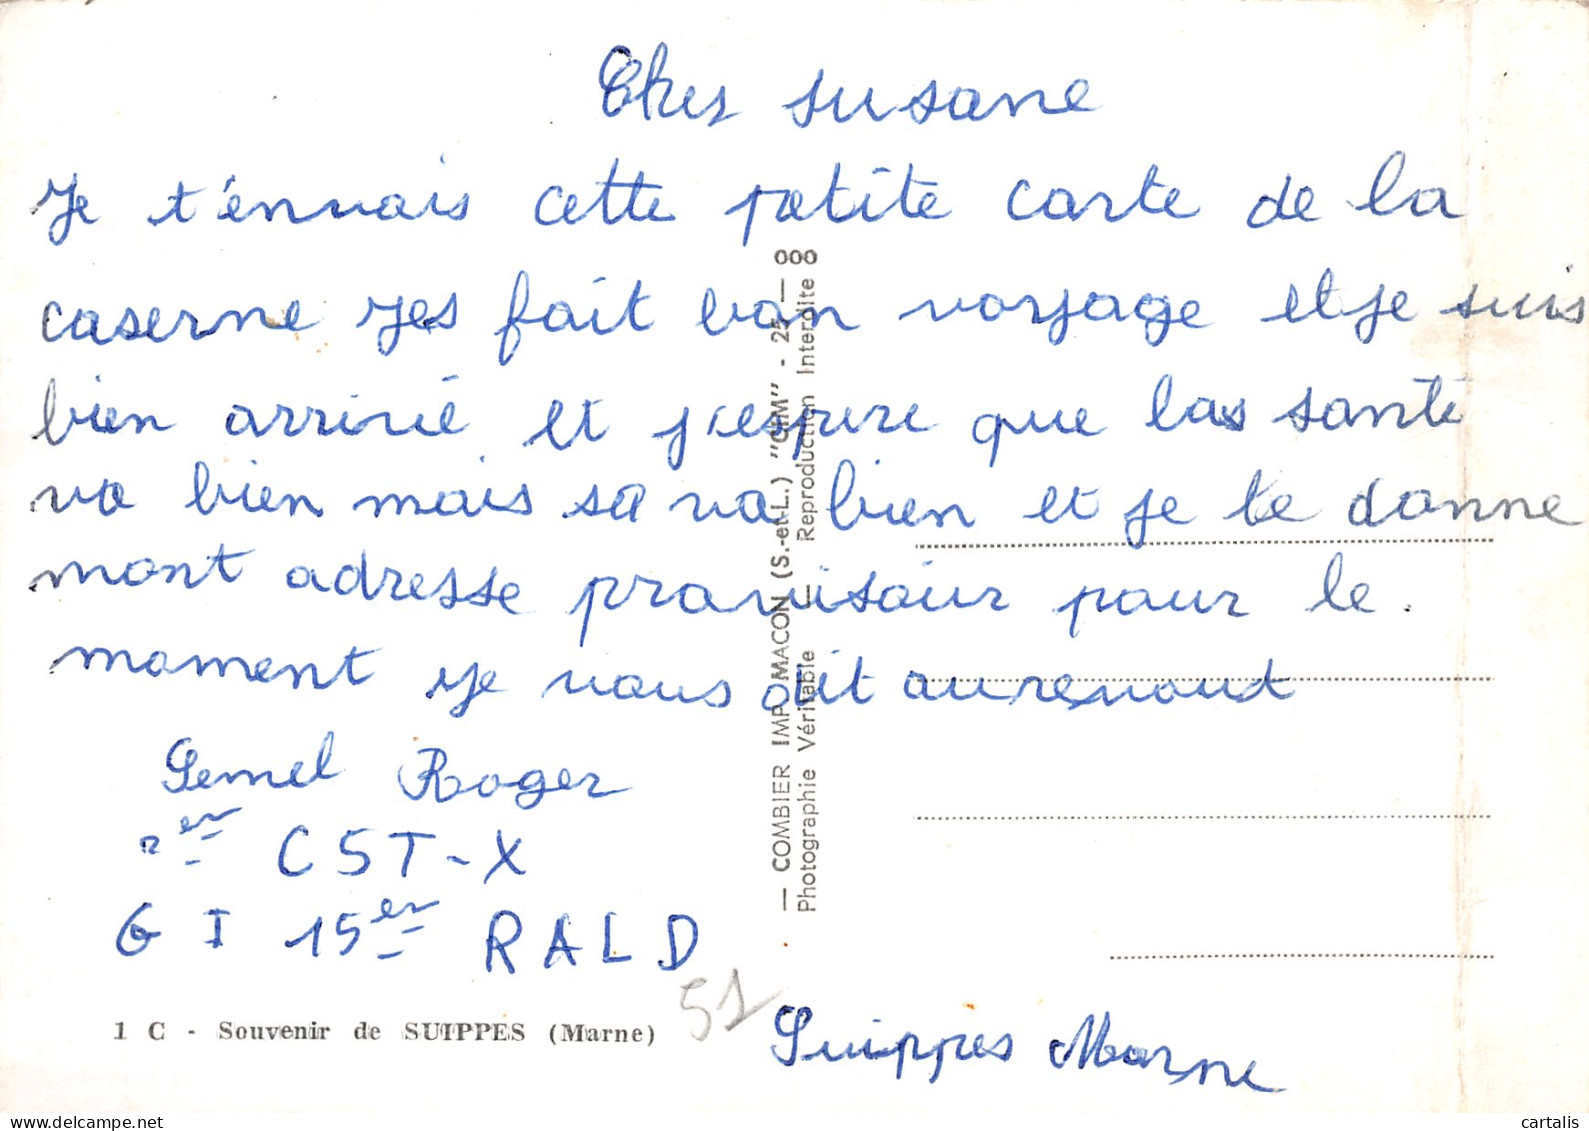 Cher susane
Je t'envais cette petite carte de la
caserne jes fait bon voyage et je suis
bien arrivé et j'espere que las santé
va bien mais sa va bien et je te donne
mont adresse provisoir pour le
moment je vous dit aurevout
Roger
er CST-X
G I 15er RALD
1 C - Souvenir de SUIPPES (Marne)
51
Suippes Marne
— COMBIER IMP. MACON (S.-et-L.) "CIM" - 25 — 000
Photographie Véritable — Reproduction Interdite 8
cartalis
www.delcampe.net